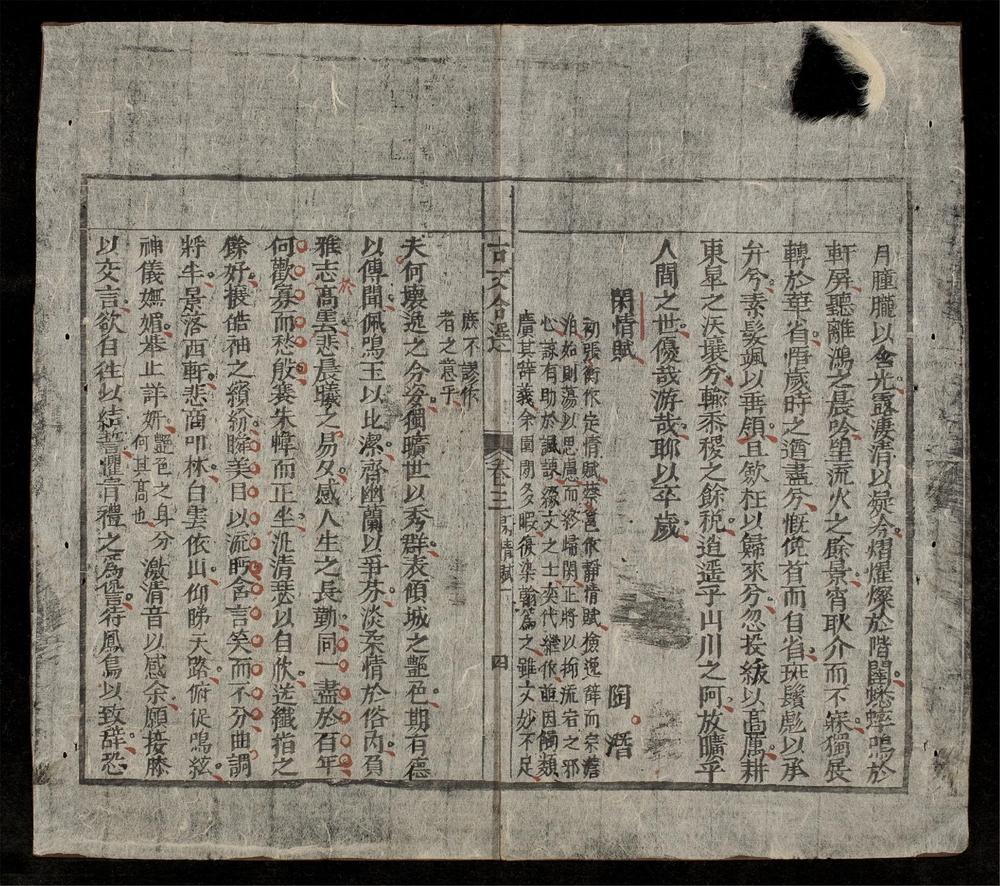 月朣朧以含光露淒清以凝冷熠燿燦於階闥蟋蟀鳴於
軒屏聽離鴻之晨吟望流火之餘景宵耿介而不寐獨展
轉於華省悟歲時之遒盡兮慨俛首而自省斑鬢彪以承
弁兮素髮颯以垂領且斂衽以歸來兮忽投紱以高厲耕
東皐之沃壤兮輸黍稷之餘稅逍遥乎山川之阿放曠乎
人間之世優哉游哉聊以卒歲
閑情賦 陶潛
初張衡作定情賦蔡邕作靜情賦檢逸辭而宗澹
泊始則蕩以思慮而終歸閑正將以抑流宕之邪
心諒有助於諷諫綴文之士奕代繼作並因觸類
廣其辭義余園閭多暇復染翰爲之雖文妙不足
古文合選 卷三 閑情賦一 四
庶不謬作
者之意乎
夫何瓌逸之令姿獨曠世以秀群表傾城之豔色期有德
以傳聞佩鳴玉以比潔齊幽蘭以爭芬淡柔情於俗內負
雅志於高雲悲晨曦之易夕感人生之長勤同一盡於百年
何歡寡而愁殷褰朱幃而正坐汎清瑟以自欣送纖指之
餘好攘皓袖之繽紛瞬美目以流眄含言笑而不分曲調
將半景落西軒悲商叩林白雲依山仰睇天路俯促鳴絃
神儀嫵媚舉止詳妍豔色之身分何其高也激清音以感余願接膝
以交言欲自往以結誓懼冒禮之爲愆待鳳鳥以致辭恐